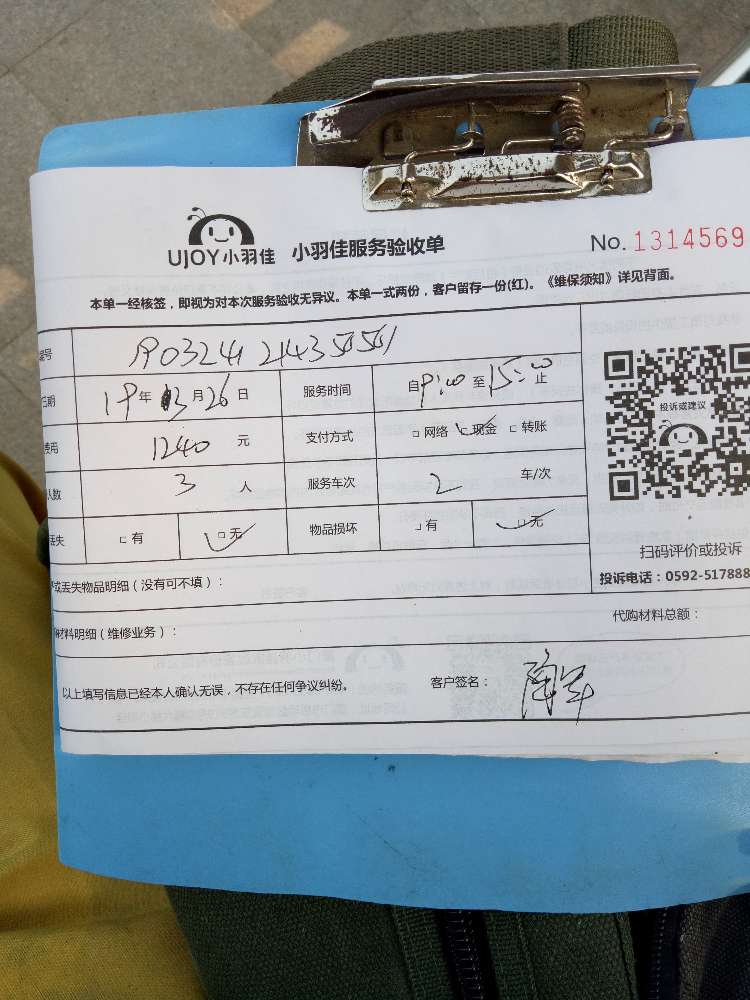 UJOY小羽佳 小羽佳服务验收单 No. 1314569
本单一经核签，即视为对本次服务验收无异议。本单一式两份，客户留存一份(红)。《维保须知》详见背面。
号
日期 19年 3月26日 服务时间 自9:00至15:00止
费用 1240元 支付方式 □网络 ☑现金 □转账
人数 3人 服务车次 2 车/次
丢失 □有 ☑无 物品损坏 □有 ☑无
投诉或建议
扫码评价或投诉
投诉电话：0592-517888
或丢失物品明细（没有可不填）：
代购材料总额：
材料明细（维修业务）：
以上填写信息已经本人确认无误，不存在任何争议纠纷。 客户签名：